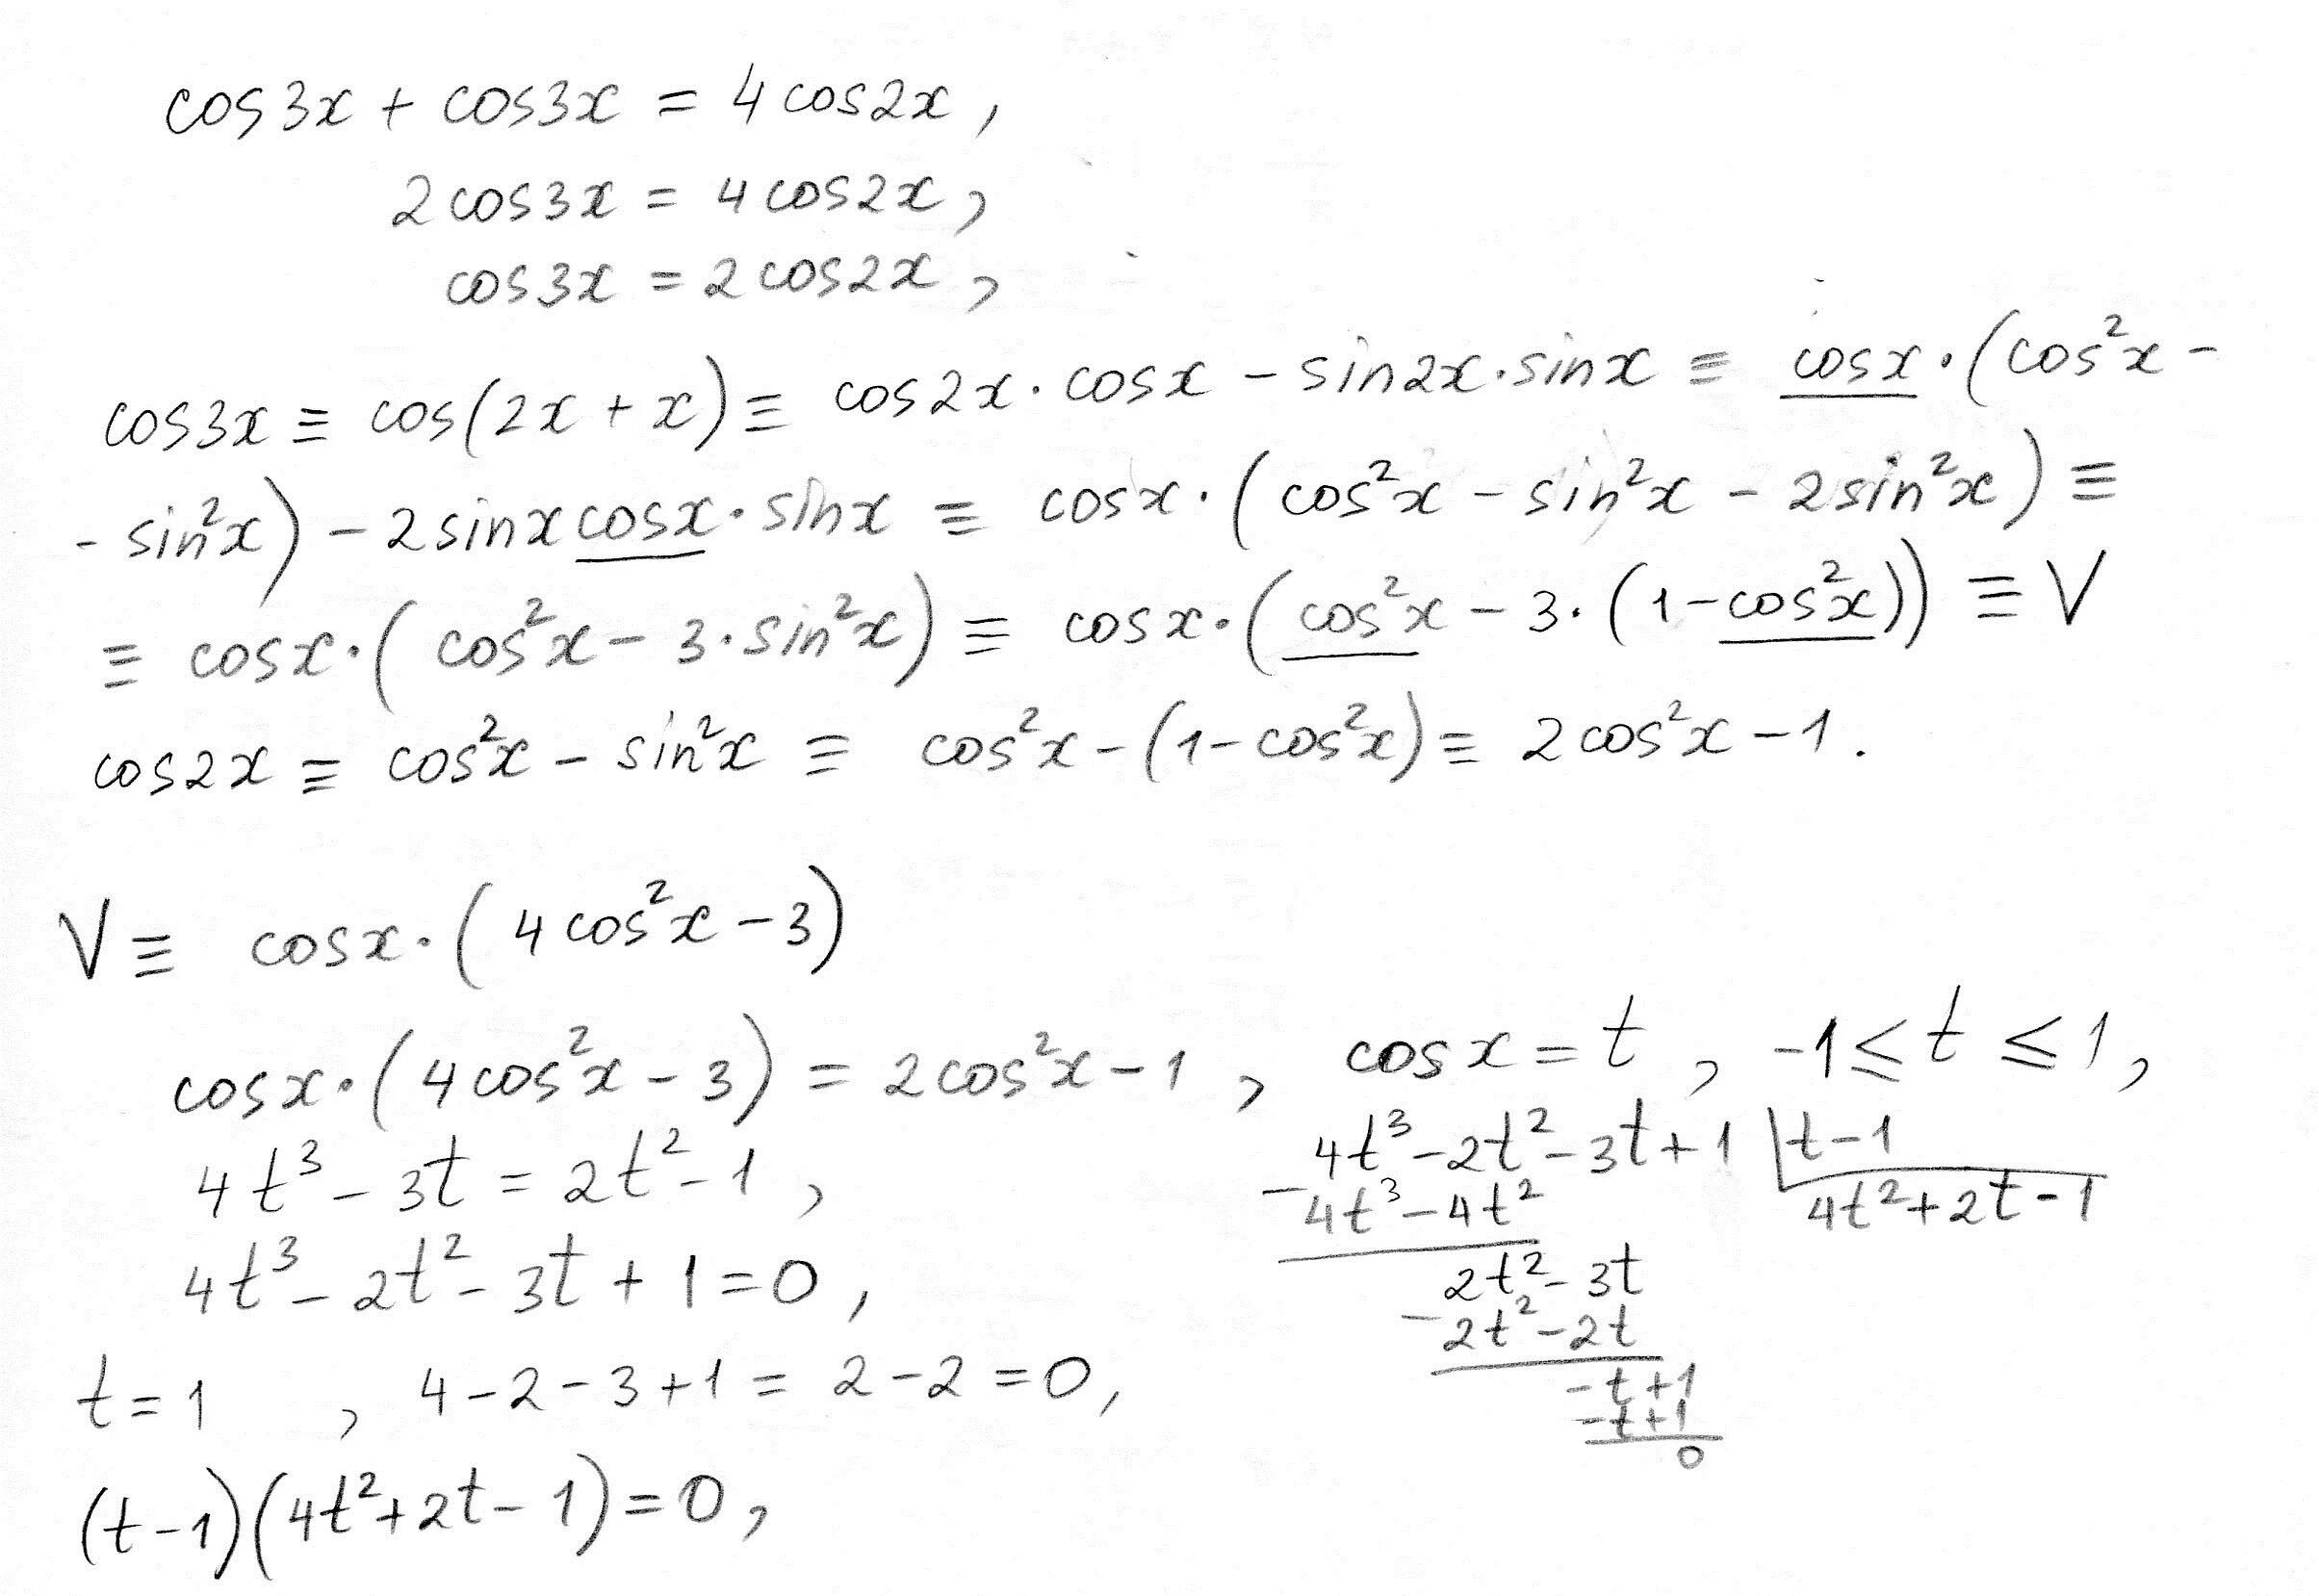 cos3x + cos3x = 4cos2x,
2cos3x = 4cos2x,
cos3x = 2cos2x,
cos3x ≡ cos(2x + x) ≡ cos2x · cosx − sin2x · sinx ≡ cosx · (cos²x −
− sin²x) − 2sinxcosx · sinx ≡ cosx · (cos²x − sin²x − 2sin²x) ≡
≡ cosx · (cos²x − 3 · sin²x) ≡ cosx · (cos²x − 3 · (1 − cos²x)) ≡ V
cos2x ≡ cos²x − sin²x ≡ cos²x − (1 − cos²x) ≡ 2cos²x − 1.
V ≡ cosx · (4cos²x − 3)
cosx · (4cos²x − 3) = 2cos²x − 1, cosx = t, −1 ≤ t ≤ 1,
4t³ − 3t = 2t² − 1,
4t³ − 2t² − 3t + 1 = 0,
t = 1, 4 − 2 − 3 + 1 = 2 − 2 = 0,
(t − 1)(4t² + 2t − 1) = 0,
4t³ − 2t² − 3t + 1 | t − 1
− 4t³ − 4t² 4t² + 2t − 1
2t² − 3t
− 2t² − 2t
−t + 1
−t + 1
0